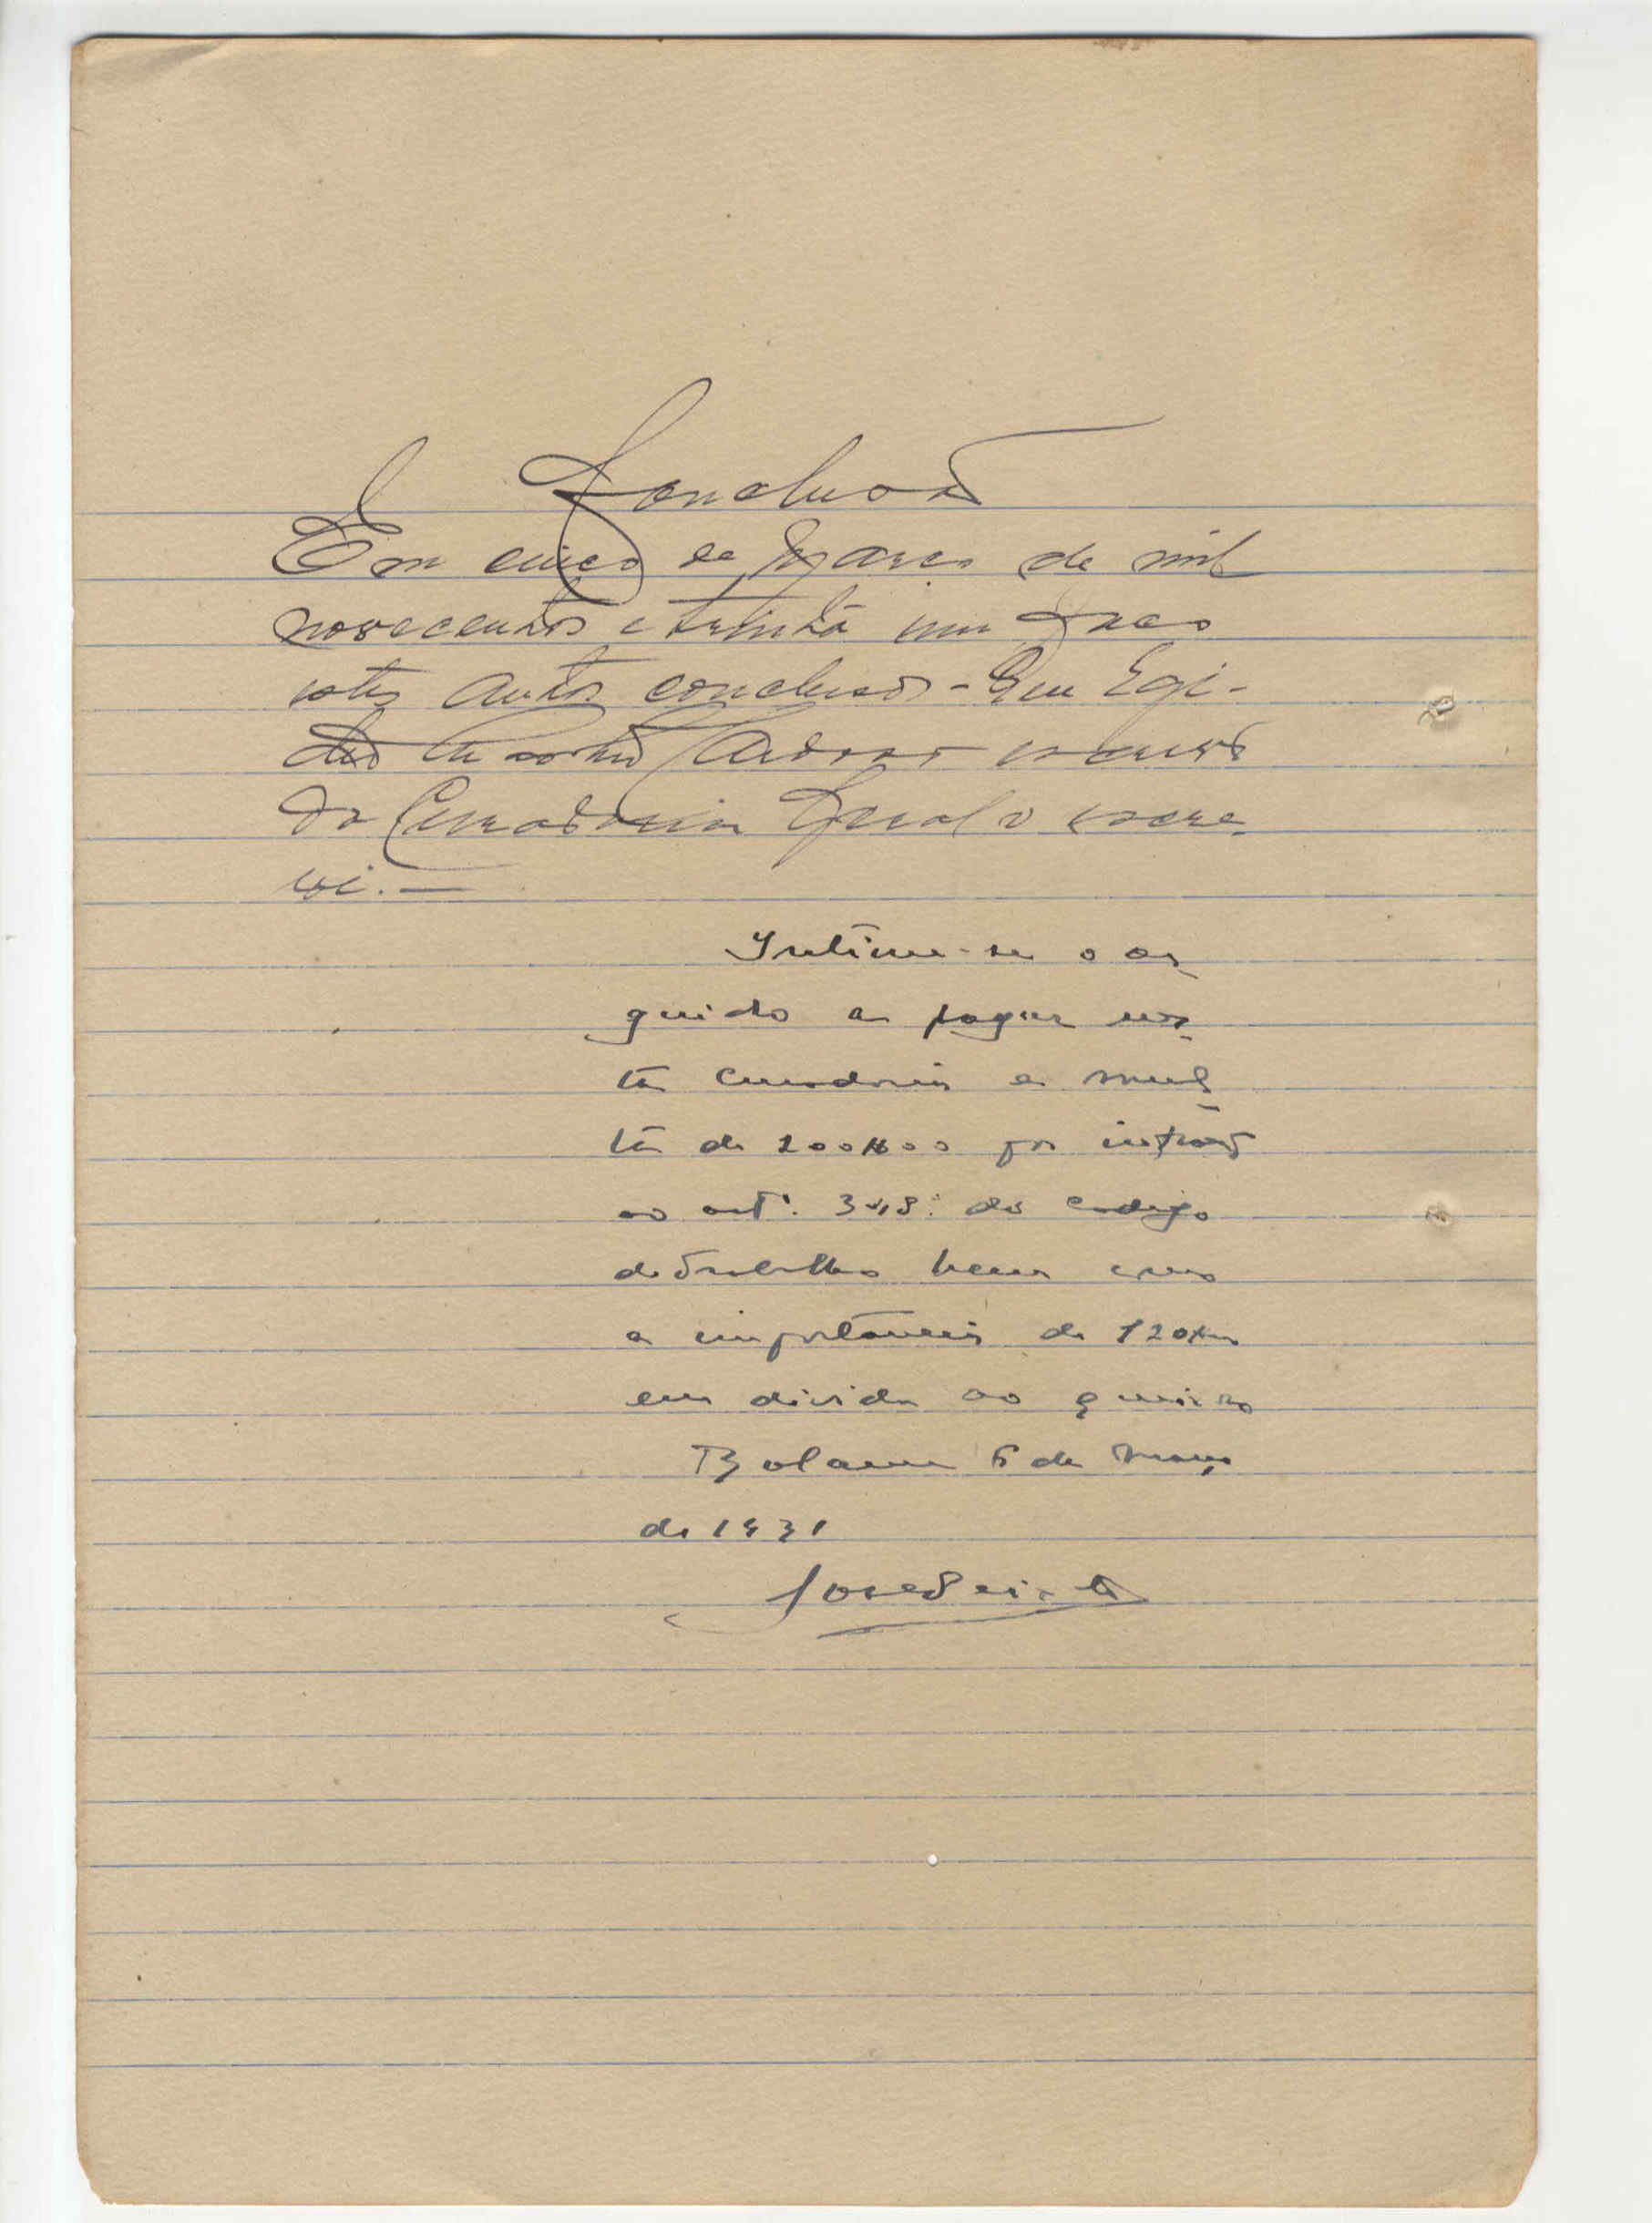 Conclusão
Em cinco de Março de mil
novecentos e trinta um faço
estes autos conclusos - Eu Egi-
dio Cardoso escrivão
da Curadoria Geral o escre-
vi. —
Intime-se o ar-
guido a pagar nes-
ta curadoria a mul-
ta de 200$00 por infração
ao artº. 348º. do codigo
do Trabalho bem como
a importancia de 120$00
em divida ao queixoso
Bolama 5 de Março
de 1931